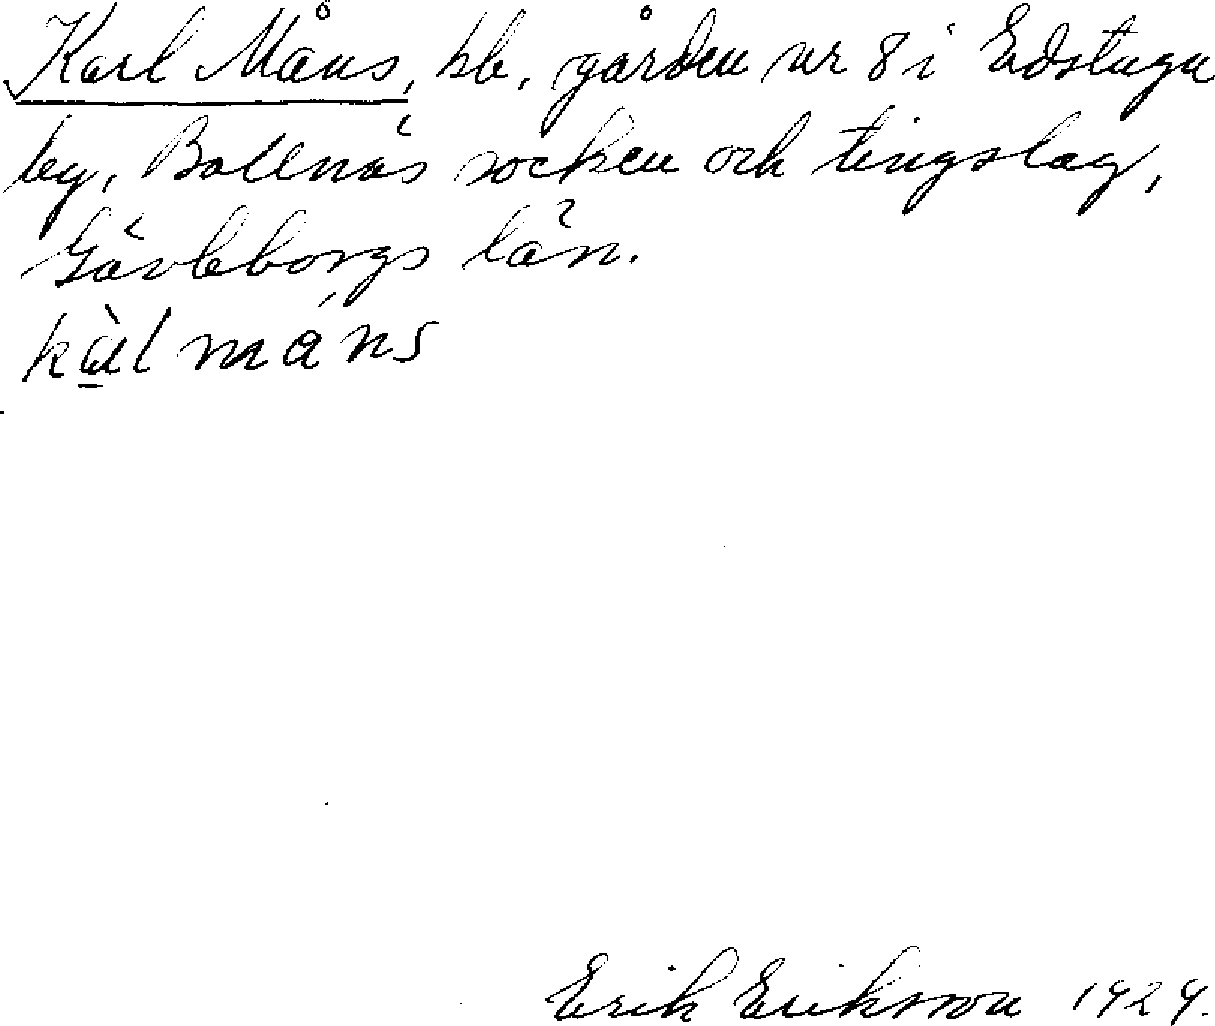 Karl Måns, bb. gården nr 8 i Edstuga
by, Bollnäs socken och tingslag,
Gävleborgs län.
kàl máns
Erik Eriksson 1929.